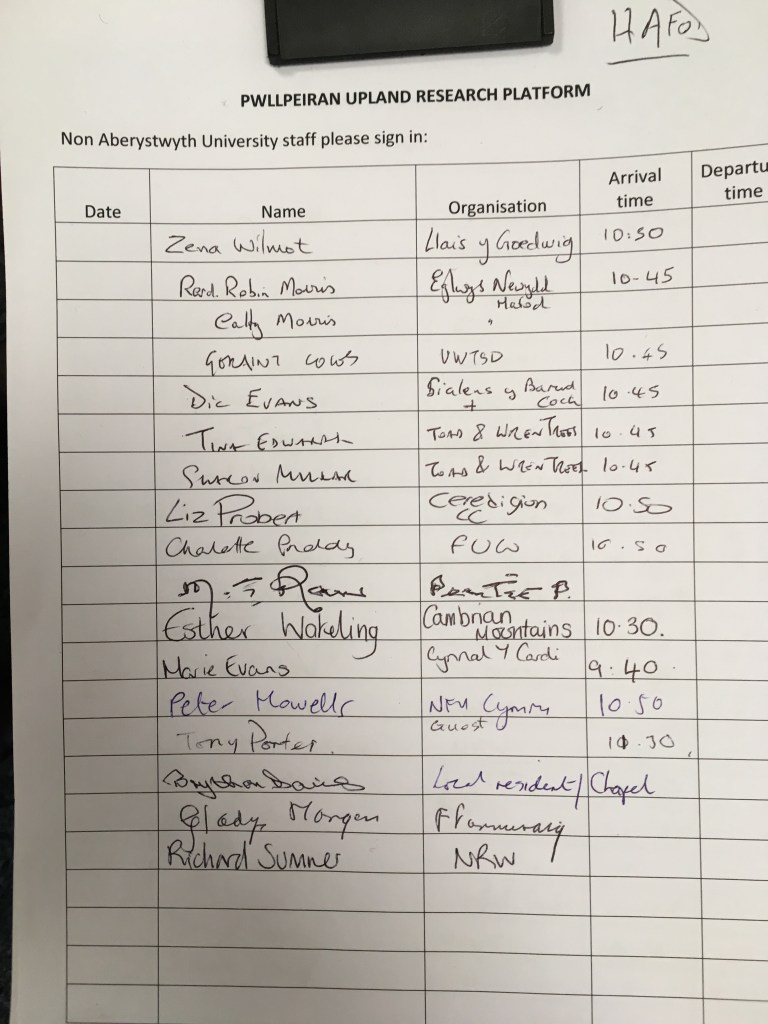 HAFOD
PWLLPEIRAN UPLAND RESEARCH PLATFORM
Non Aberystwyth University staff please sign in:
Date Name Organisation Arrival time Departu time
Zena Wilmot Llais y Goedwig 10:30
Revd. Robin Morris Eglwys Newydd Hafod 10-45
Cathy Morris "
UWTSD 10.45
Dic EVANS Sialens y Barcud Coch + 10.45
TINA EDWARDS TOAD & WREN TREES 10.45
SHARON MILLAR TOAD & WREN TREES 10.45
Liz Probert Ceredigion CC 10.50
Charlotte Priddy FUW 10.50
M.
Esther Wakeling Cambrian Mountains 10.30.
Marie Evans Cynnal Y Cardi 9:40.
Peter Howells NFU Cymru 10.50
Tony Porter. Guest 10.30
Local resident/Chapel
Glady Morgan
Richard Sumner NRW